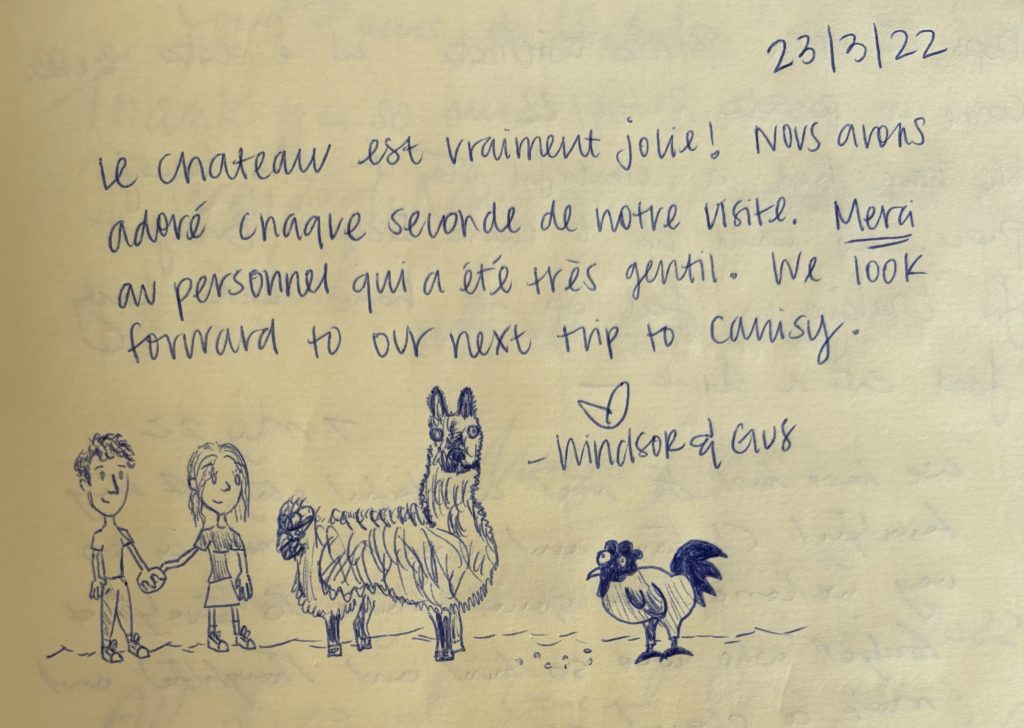 23/3/22
Le chateau est vraiment jolie! Nous avons
adoré chaque seconde de notre visite. Merci
au personnel qui a été très gentil. We look
forward to our next trip to Canisy.
- Windsor & Gus